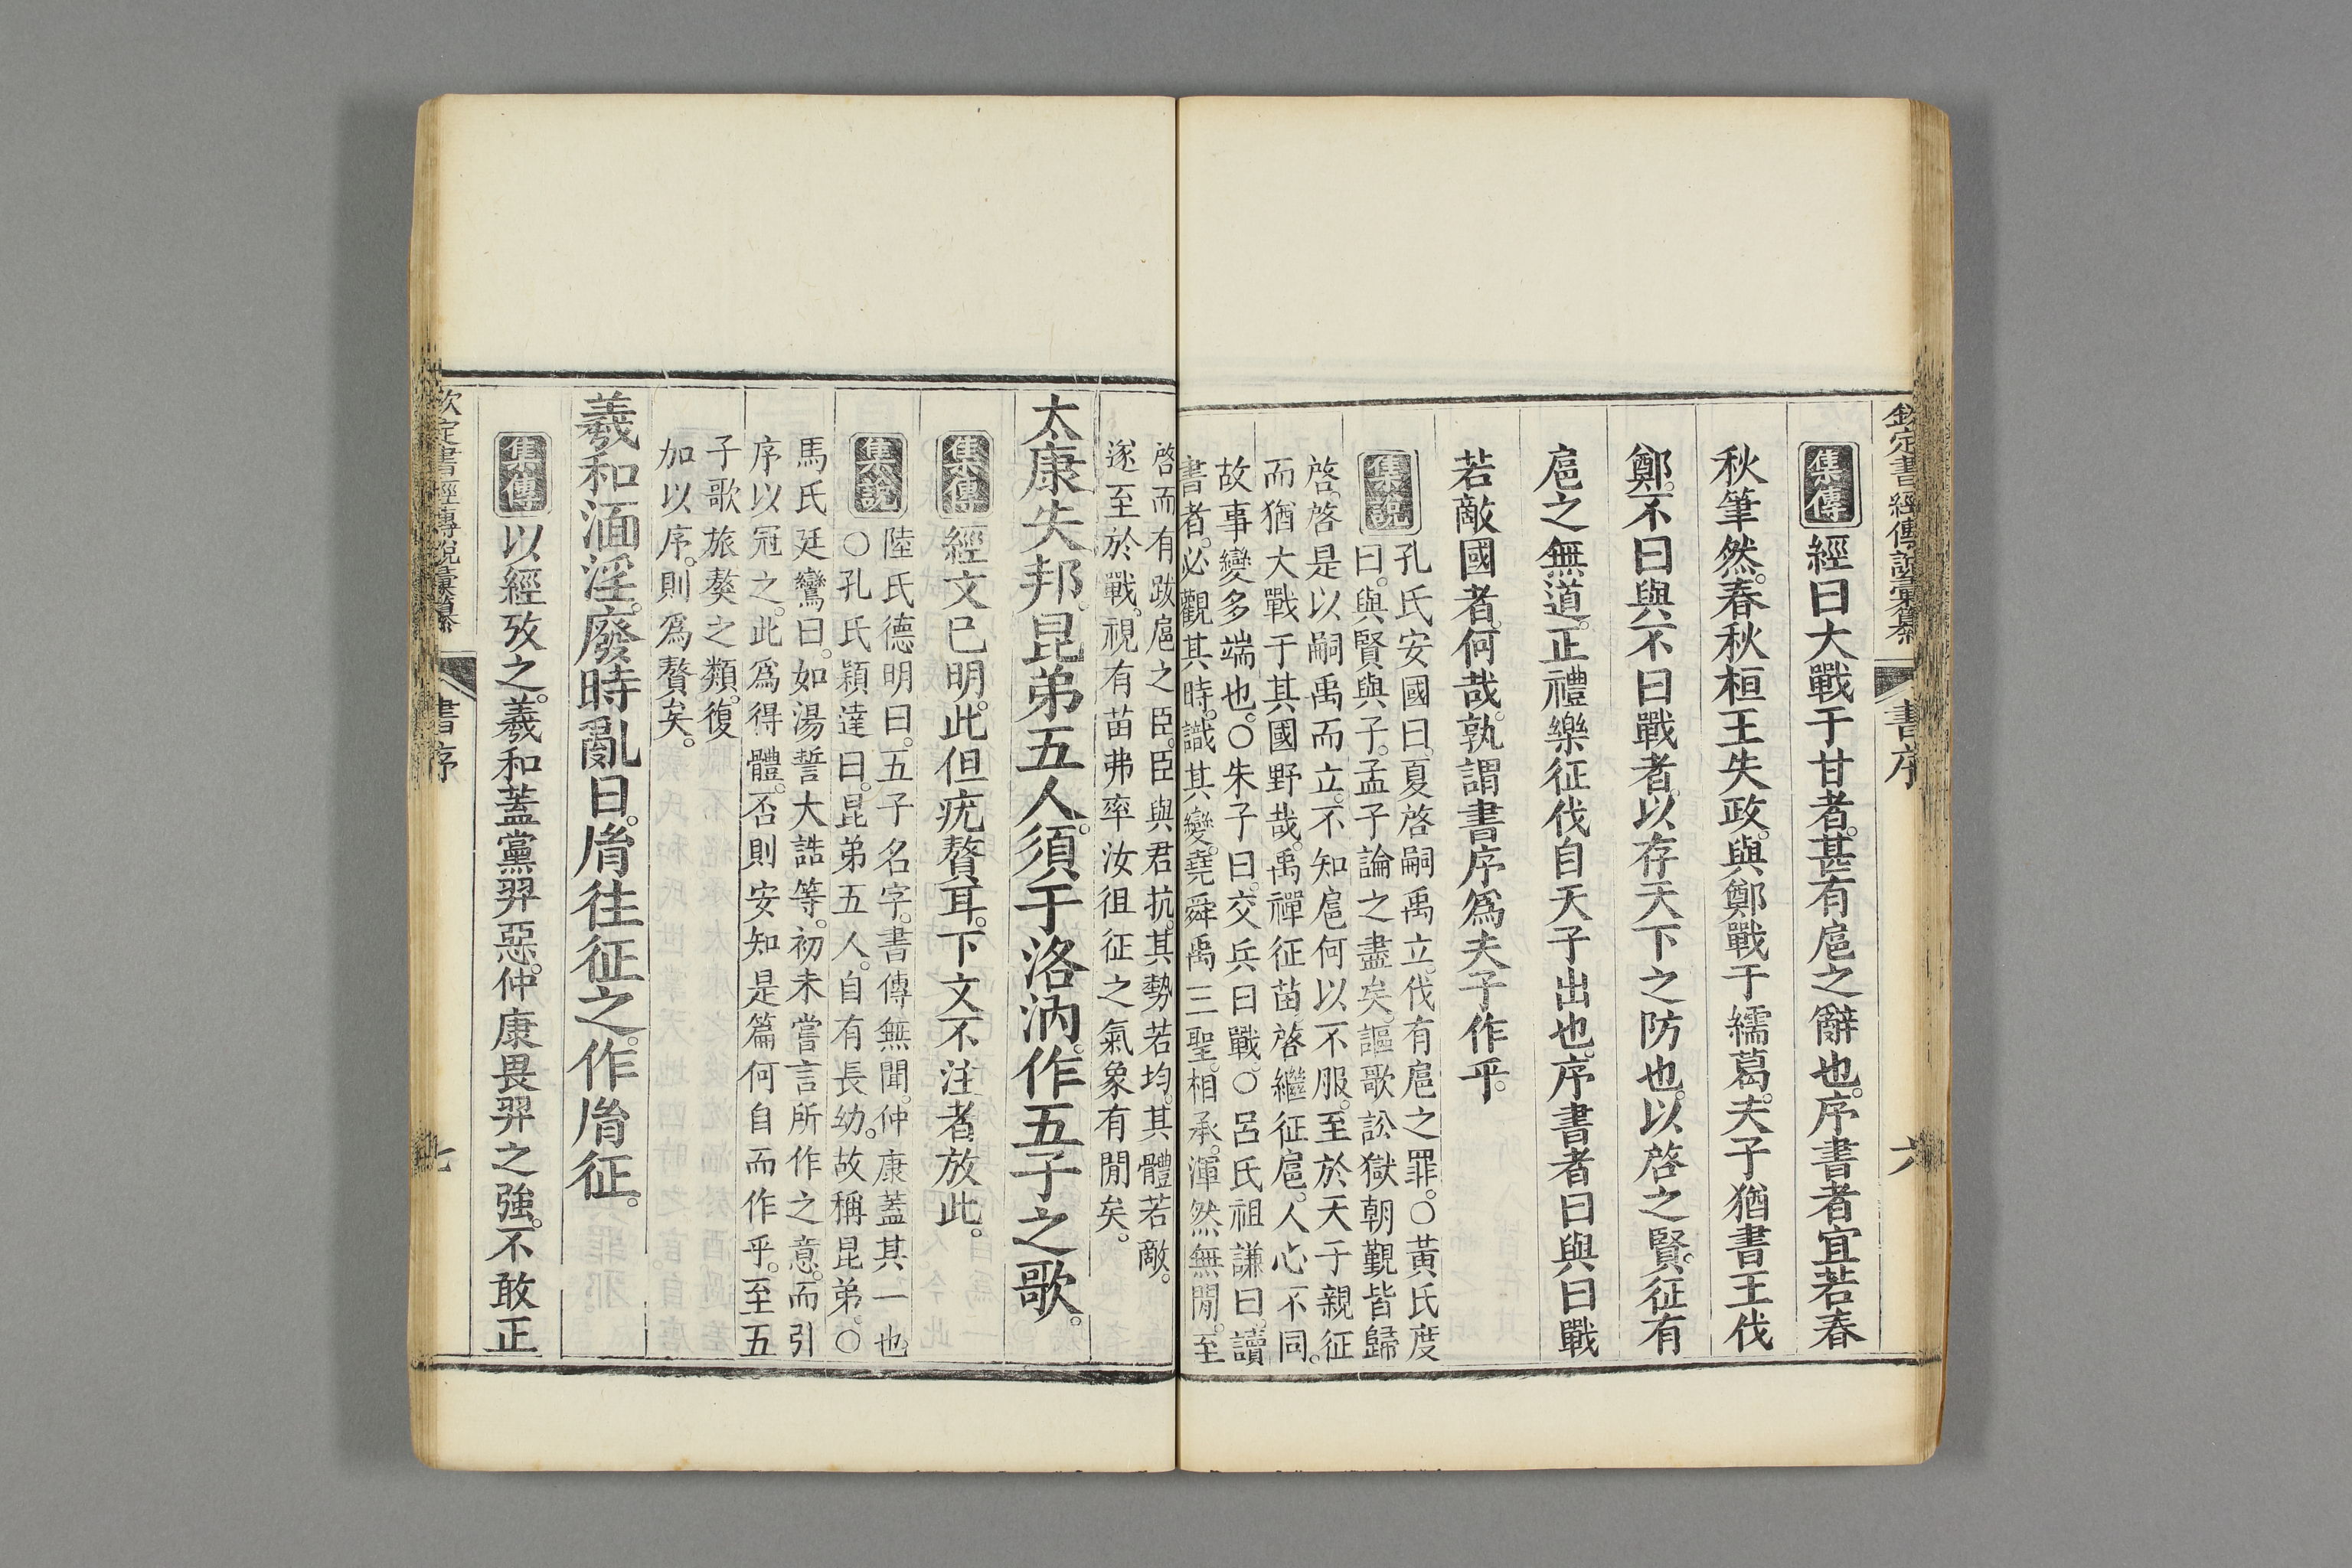 欽定書經傳說彙纂　書序　六
集傳　經曰大戰于甘者。甚有扈之辭也。序書者宜若春
秋筆然。春秋桓王失政。與鄭戰于繻葛。夫子猶書王伐
鄭。不曰與。不曰戰者。以存天下之防也。以啓之賢。征有
扈之無道。正禮樂征伐自天子出也。序書者曰與曰戰
若敵國者。何哉。孰謂書序爲夫子作乎。
集說　孔氏安國曰。夏啓嗣禹立。伐有扈之罪。○黃氏度
曰。與賢與子。孟子論之盡矣。謳歌訟獄朝覲皆歸
啓。啓是以嗣禹而立。不知扈何以不服。至於天子親征
而猶大戰于其國野哉。禹禪征苗。啓繼征扈。人心不同。
故事變多端也。○朱子曰。交兵曰戰。○呂氏祖謙曰。讀
書者。必觀其時。識其變。堯舜禹三聖。相承。渾然無閒。至
啓而有跋扈之臣。臣與君抗。其勢若均。其體若敵。
遂至於戰。視有苗弗率汝徂征之氣象有閒矣。
太康失邦。昆弟五人。須于洛汭。作五子之歌。
集傳　經文已明。此但疣贅耳。下文不注者放此。
集說　陸氏德明曰。五子名字。書傳無聞。仲康蓋其一也。
○孔氏穎達曰。昆弟五人。自有長幼。故稱昆弟。○
馬氏廷鸞曰。如湯誓大誥等。初未嘗言所作之意。而引
序以冠之。此爲得體。否則安知是篇何自而作乎。至五
子歌旅獒之類。復
加以序。則爲贅矣。
羲和湎淫。廢時亂日。胤往征之。作胤征。
集傳　以經攷之。羲和蓋黨羿惡。仲康畏羿之強。不敢正
欽定書經傳說彙纂　書序　七